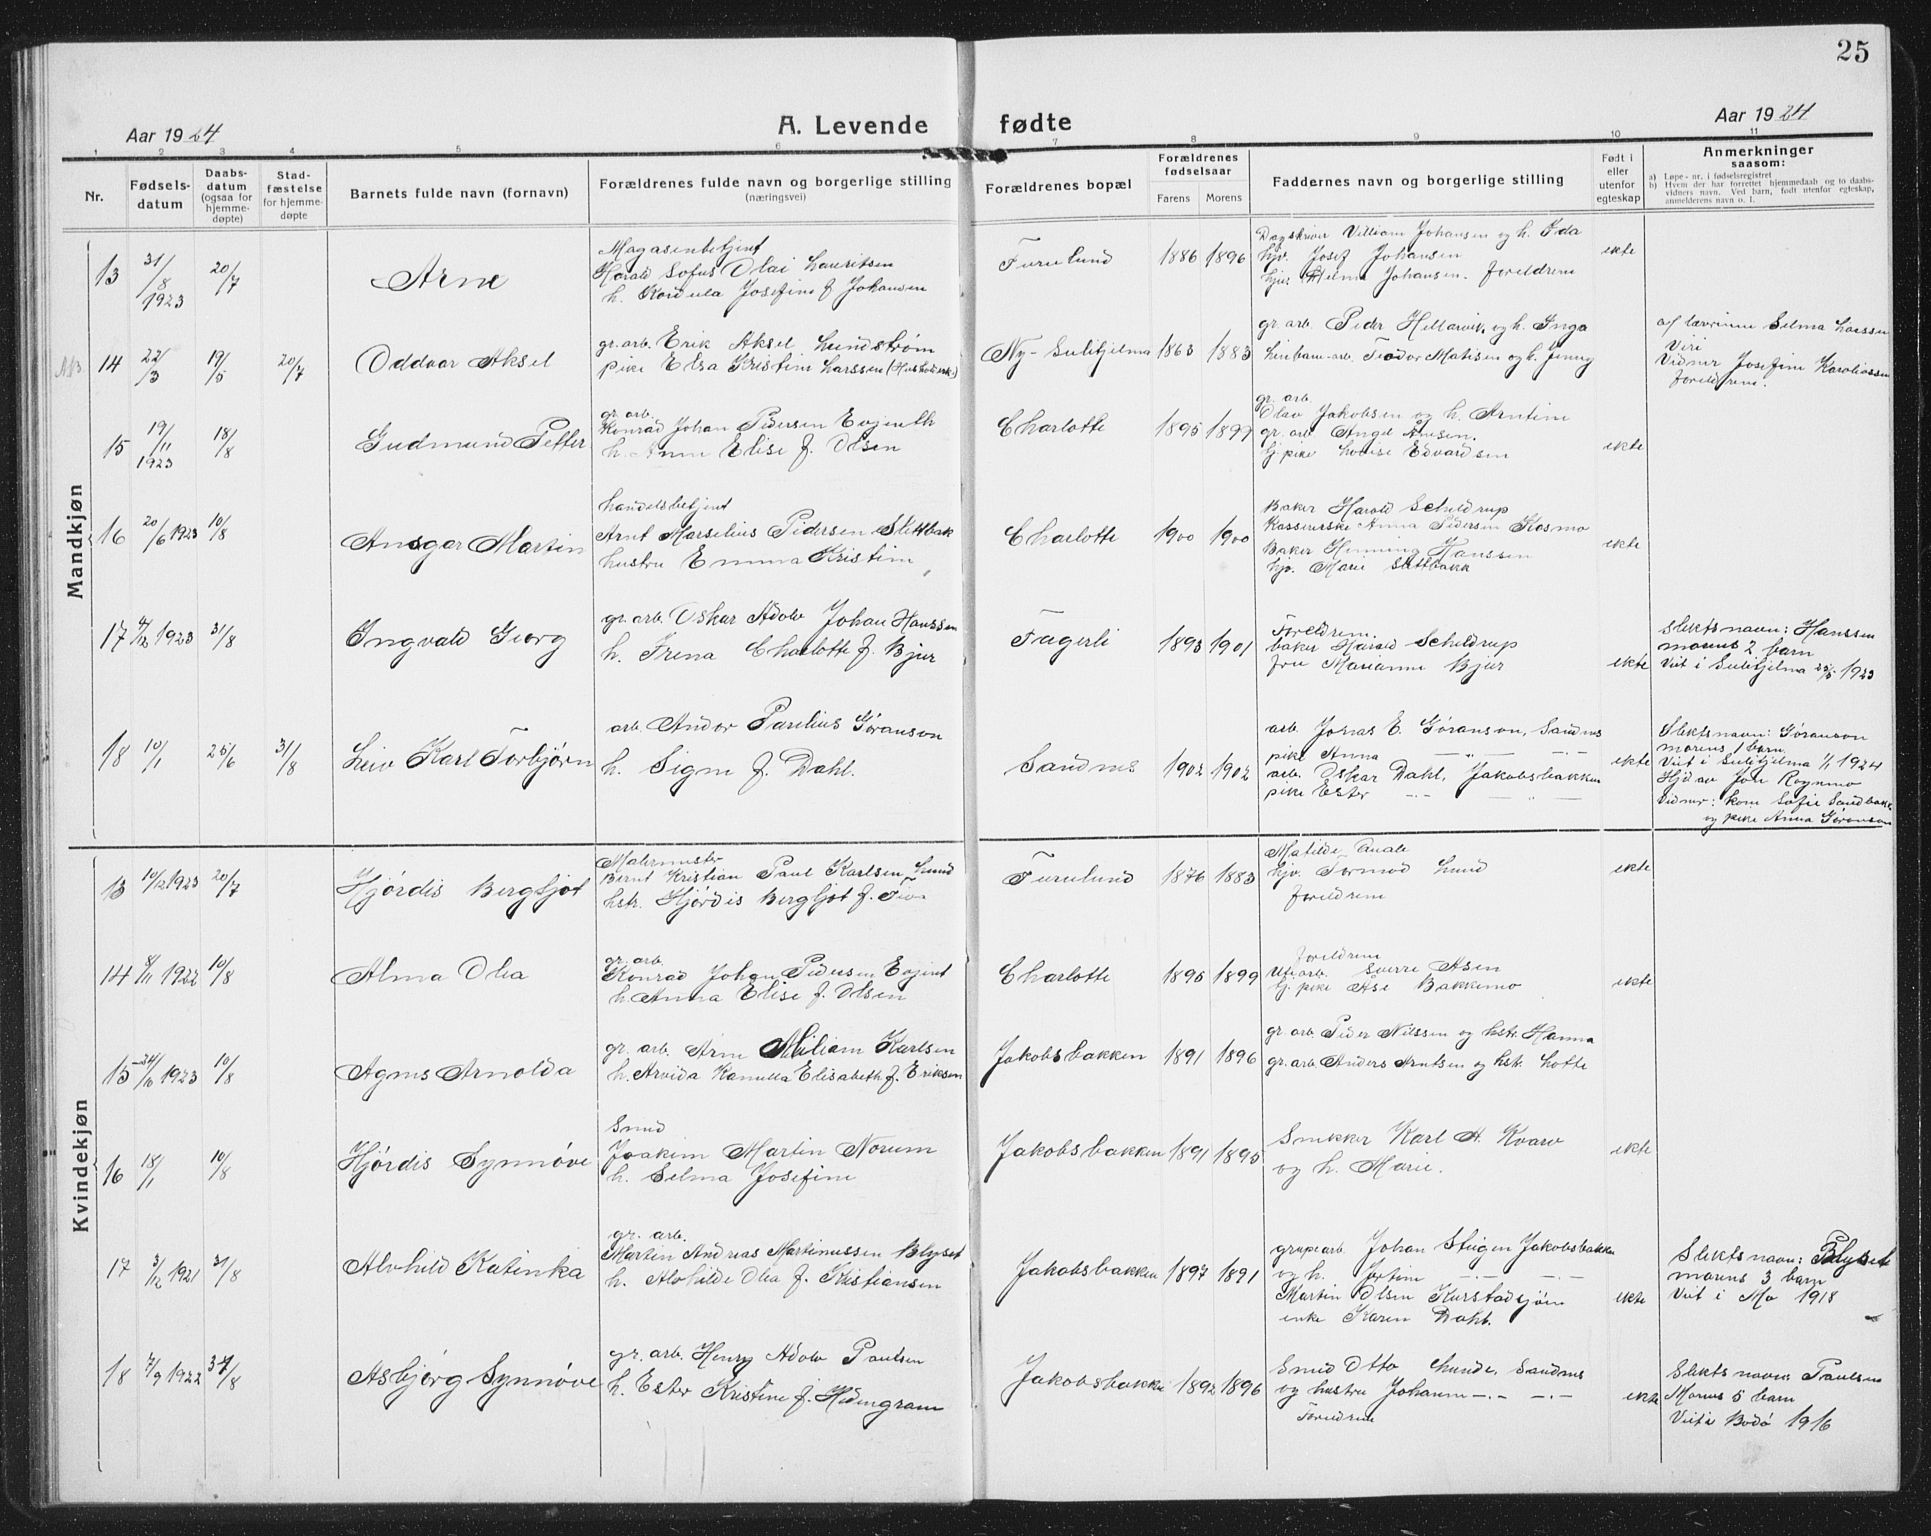 25
Aar 1924
A. Levende fødte
Aar 1924
1 2 3 4 5 6 7 8 9 10 11
Nr.
Fødsels-
datum
Daabs-
datum
(ogsaa for
hjemme-
døpte)
Stad-
fæstelse
for hjemme-
døpte
Barnets fulde navn (fornavn)
Forældrenes fulde navn og borgerlige stilling
(næringsvei)
Forældrenes bopæl
Forældrenes
fødselsaar
Farens Morens
Faddernes navn og borgerlige stilling
Født i
eller
utenfor
egteskap
Anmerkninger
saasom:
a) Løpe-nr. i fødselsregistret
b) Hvem der har forrettet hjemmedaab og to daabs-
vidners navn. Ved barn, født utenfor egteskap,
anmelderens navn o. l.
Mandkjøn
13
31/8
1923
20/7
Arne
Magasinbetjent
Harald Sofus Olai Lauritsen
h. Kordula Josefine f. Johansen
Furulund
1886 1896
Dagskriver Villiam Johansen og h. Ida
hjv. Josef Johansen
hjv. Helma Johansen. Foreldrene
ekte
14
22/3
19/5
20/7
Oddvar Aksel
gr. arb. Erik Aksel Lundstrøm
pike Elsa Kristine Larssen
Ny-Sulitjelma
1863 1883
gr. arb. Peder Hellarvik og h. Inga
Linbane-arb. Teodor Matisen og h. Jenny
af lærerinne Selma Larssen
Viri
Vidner Josefine Karoliussen
foreldrene.
15
19/11
1923
18/8
Gudmund Petter
gr. arb.
Konrad Johan Pedersen Evjenth
h. Anne Elise f. Olsen
Charlotte
1895 1899
gr. arb.
Olav Jakobsen og h. Arntine
gr. arb. Angel Anesen.
tj. pike Lovise Edvardsen
ekte
16
20/6 1923
10/8
Ansgar Martin
Handelsbetjent
Arnt Marselius Pedersen Slettbak
hustru Emma Kristine
Charlotte
1900 1900
Baker Harald Scheldrup
Kassererske Anna Pedersen Kosmo
Baker Henning Hanssen
hjv. Marie Slettbakk
ekte
17
4/12 1923
31/8
Ingvald Georg
gr. arb. Oskar Adolv Johan Hanssen
h. Frena Charlotte f. Bjur
Fagerli
1893 1901
Foreldrene.
baker Harald Scheldrup
fru Marianne Bjur
ekte
Slektsnavn: Hanssen
morens 2 barn
Viet i Sulitjelma 25/5 1923
18
10/1
25/6
31/8
Leiv Karl Torbjørn
arb. Andor Parelius Gøranson
h. Signe f. Dahl.
Sandnes
1902 1902
arb. Jonas E. Gøranson, Sandnes
pike Anna —„— —„—
arb. Oskar Dahl, Jakobsbakken
pike Ester —„— —„—
ekte
Slektsnavn: Gøranson
morens 1 barn.
Viet i Sulitjelma 1/1 1924
Hjd av Jon Rognmo
Vidner: kone Sofie Sandbakk
og pike Anna Gøranson
Kvindekjøn
13
10/2 1923
20/7
Hjørdis Bergljot
Malermester
Bernt Kristian Paul Karlsen Lund
hstr. Hjørdis Bergljot f.
Furulund
1876 1883
Matilde
hjv. Tormod Lund
foreldrene
ekte
14
8/11 1922
10/8
Alma Olea
gr. arb.
Konrad Johan Pedersen Evjent
h. Anna Elise f. Olsen
Charlotte
1895 1899
foreldrene
Utearb. Sverre Åsen
tj. pike Åse Bakkemo
ekte
15
24/10 1923
10/8
Agnes Arnolda
gr. arb. Arne Miliam Karlsen
h. Arvida Kamilla Elisabeth f. Eriksen
Jakobsbakken
1891 1896
gr. arb. Peder Nilssen og hstr. Hanna
gr. arb. Anders Arntsen og hstr. Lotte
16
18/1
10/8
Hjørdis Synnøve
Smed
Joakim Martin Norum
h. Selma Josefine
Jakobsbakken
1891 1895
Snekker Karl A. Kvarv
og h. Marie.
ekte
17
3/12 1921
31/8
Alvhild Katinka
gr. arb.
Martin Andreas Martinussen Blyset
h. Alvhilde Olea f. Kristiansen
Jakobsbakken
1897 1891
grupearb. Johan Stigen Jakobsbakken
og h. —„— —„—
Martin Olsen
enke Karen Dahl.
ekte
Slektsnavn: Blyset
morens 3 barn
Viet i Mo 1918
18
7/9 1922
31/8
Asbjørg Synnøve
gr. arb. Henry Adolv Paulsen
h. Ester Kristine f.
Jakobsbakke
1892 1896
Smed Otto Lunde, Sandnes
og hustru Johanne —„— —„—
Foreldrene
ekte
Slektsnavn Paulsen
Morens 5 barn
Viet i Bodø 1916